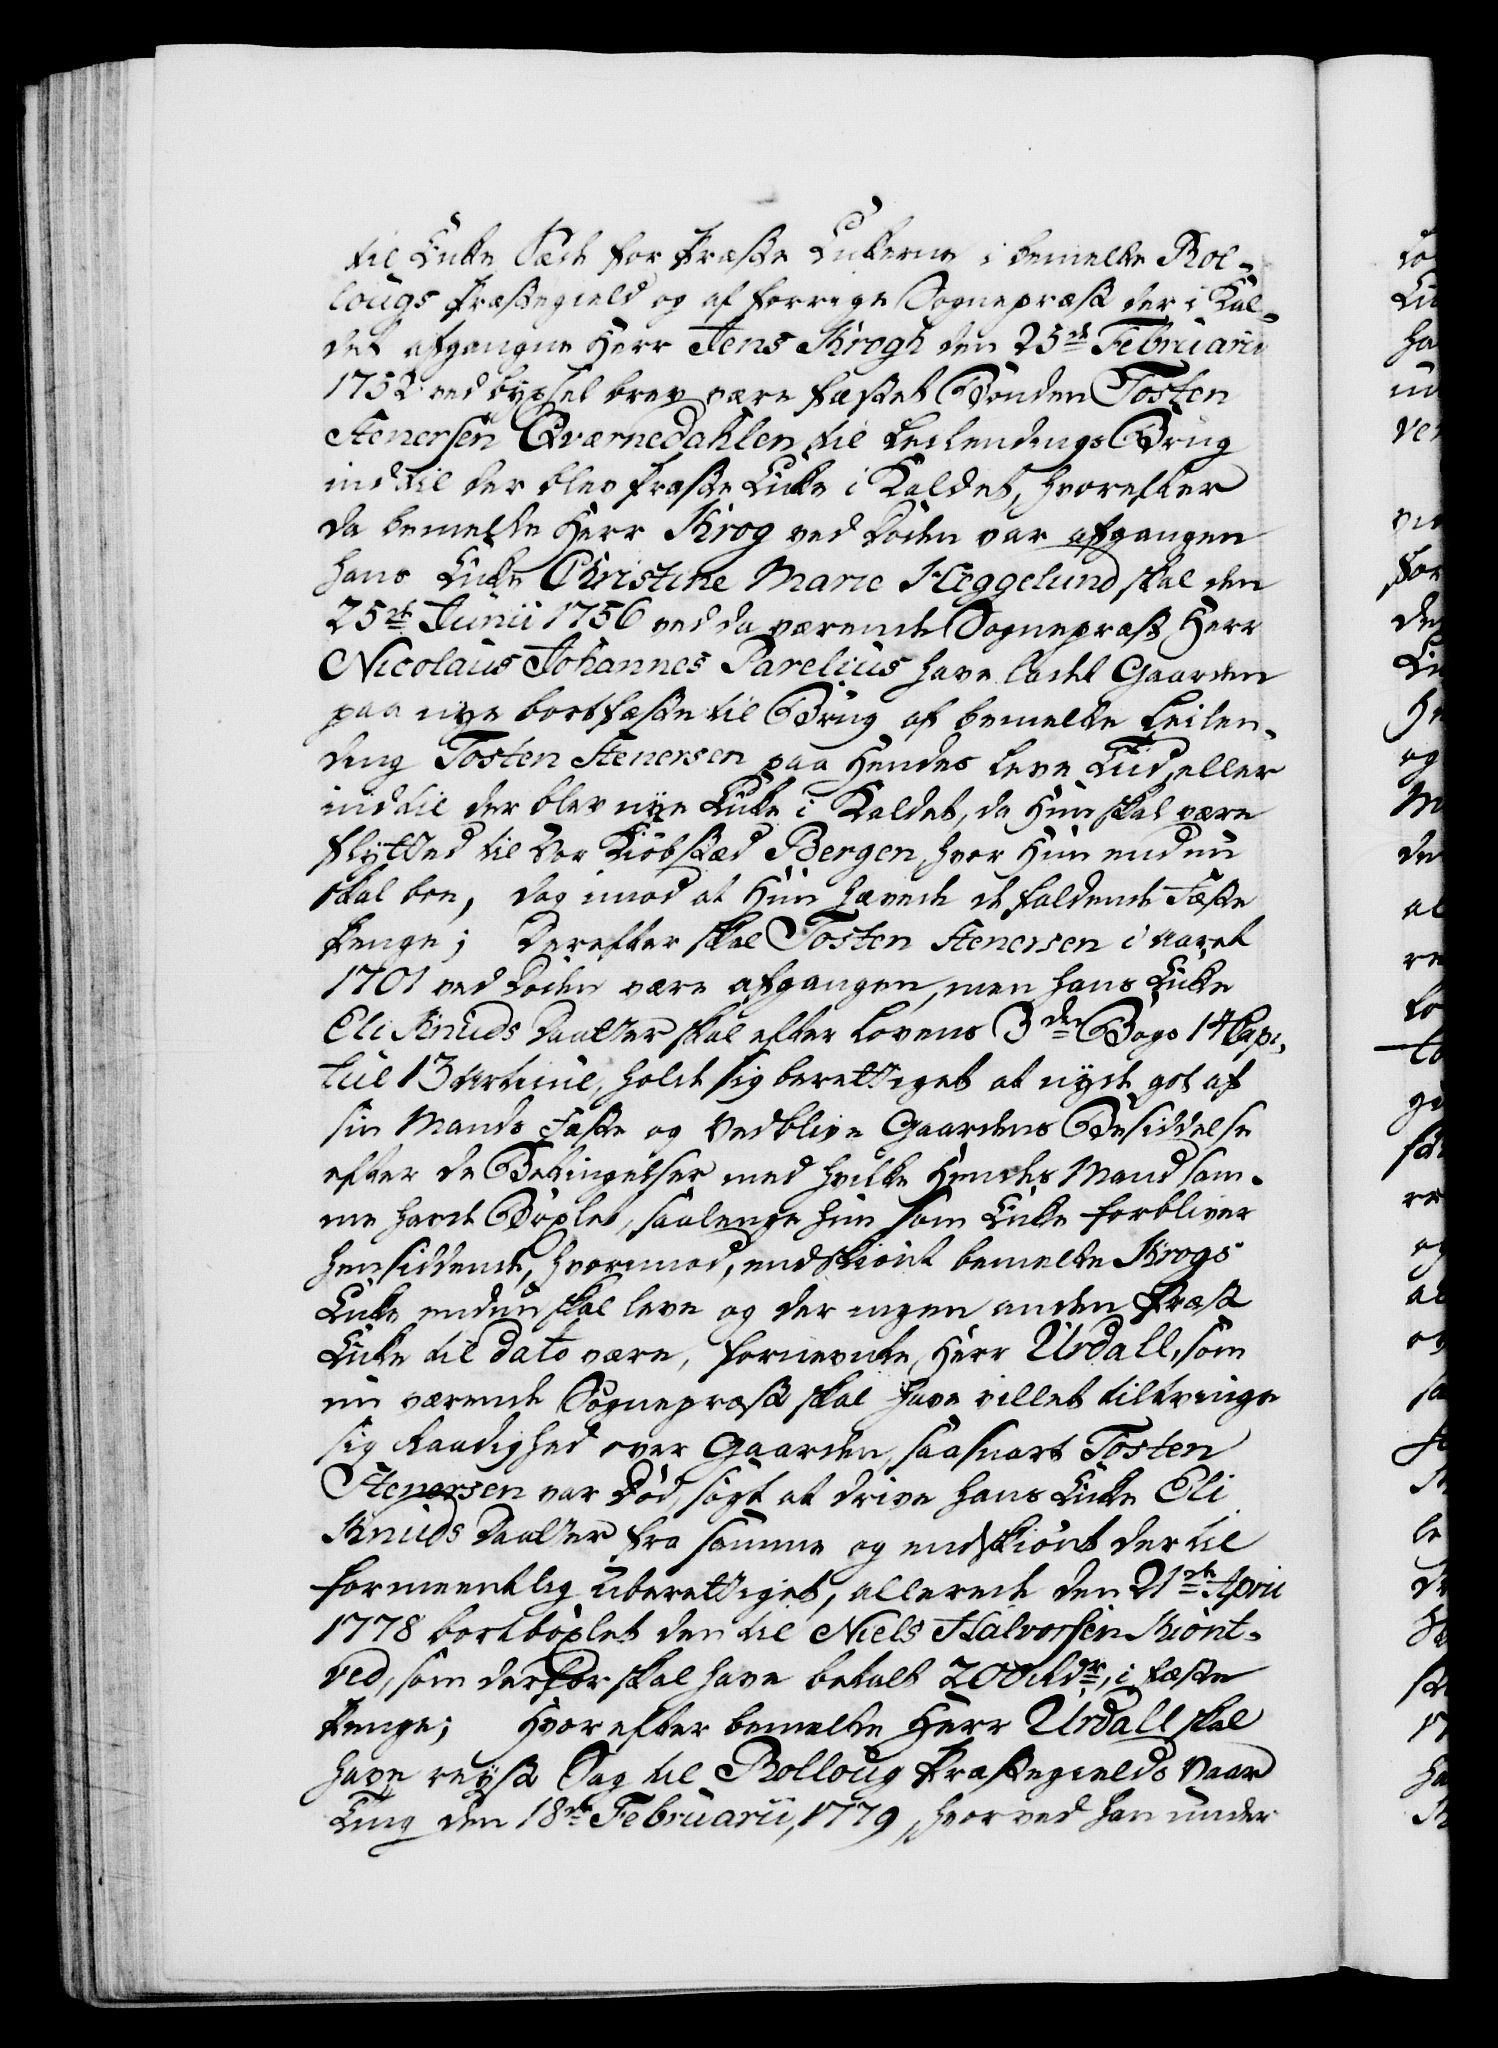 til Enke Sæde for Præste Enkerne i bemelte Rol-
lougs Præstegield og af forrige Sognepræst der i Kal-
det afgangne Herr Jens Krogh den 25de Februarii
1752 ved byxel brev være fæstet Bonden Tosten
Stenersen Qværnedahlen til Leilendings Brug
ind til der blev Præste Enke i Kaldet, hvorefter
da bemelte Herr Krog ved Døden var afgangen
hans Enke Christine Marie Heggelund skal den
25de Junii 1756 ved da værende Sognepræst Herr
Nicolaus Johannes Parelius have ladet Gaarden
paa nye bortfæste til Brug af bemelte Leilen-
ding Tosten Stenersen paa Hendes leve Tid, eller
ind til der blev nye Enke i Kaldet, da Hun skal være
flytted til Vor Kiøbstæd Bergen, hvor Hun endnu
skal boe, dog imod at Hun hævede de faldende Fæste
Penge; Derefter skal Tosten Stenersen i Aaret
1701 ved Døden være afgangen, men hans Enke
Eli Knuds Daatter skal efter Lovens 3de Bogs 14 Capi-
tul 13 Articul, holdt sig berettiget at nyde got af
sin Mands Fæste og Vedblive Gaardens Besiddelse
efter de Betingelser med hvilke Hendes Mand sam-
me havde Böxlet, saalenge hun som Enke forbliver
hensiddende, hvorimod, endskiønt bemelte Krogs
Enke endnu skal leve og der ingen anden Præst
Enke til dato være, fornevnte Herr Urdall, som
nu værende Sognepræst skal have villet tiltvinge
sig Raadighed over Gaarden, saasnart Tosten
Stenersen var Død, søgt at drive hans Enke Eli
Knuds Daatter fra samme og endskiønt dertil
formeentlig uberettiget, allerede den 21de April
1778 bortböxlet den til Niels Halvorsen Kiønt-
ved, som derfor skal have betalt 200 rdr, i Fæste
Penge; Hvorefter bemelte Herr Urdall skal
have reyst Sag til Rolloug Præstegields Vaar
Ting den 18de Februarii, 1779, hvorved han under